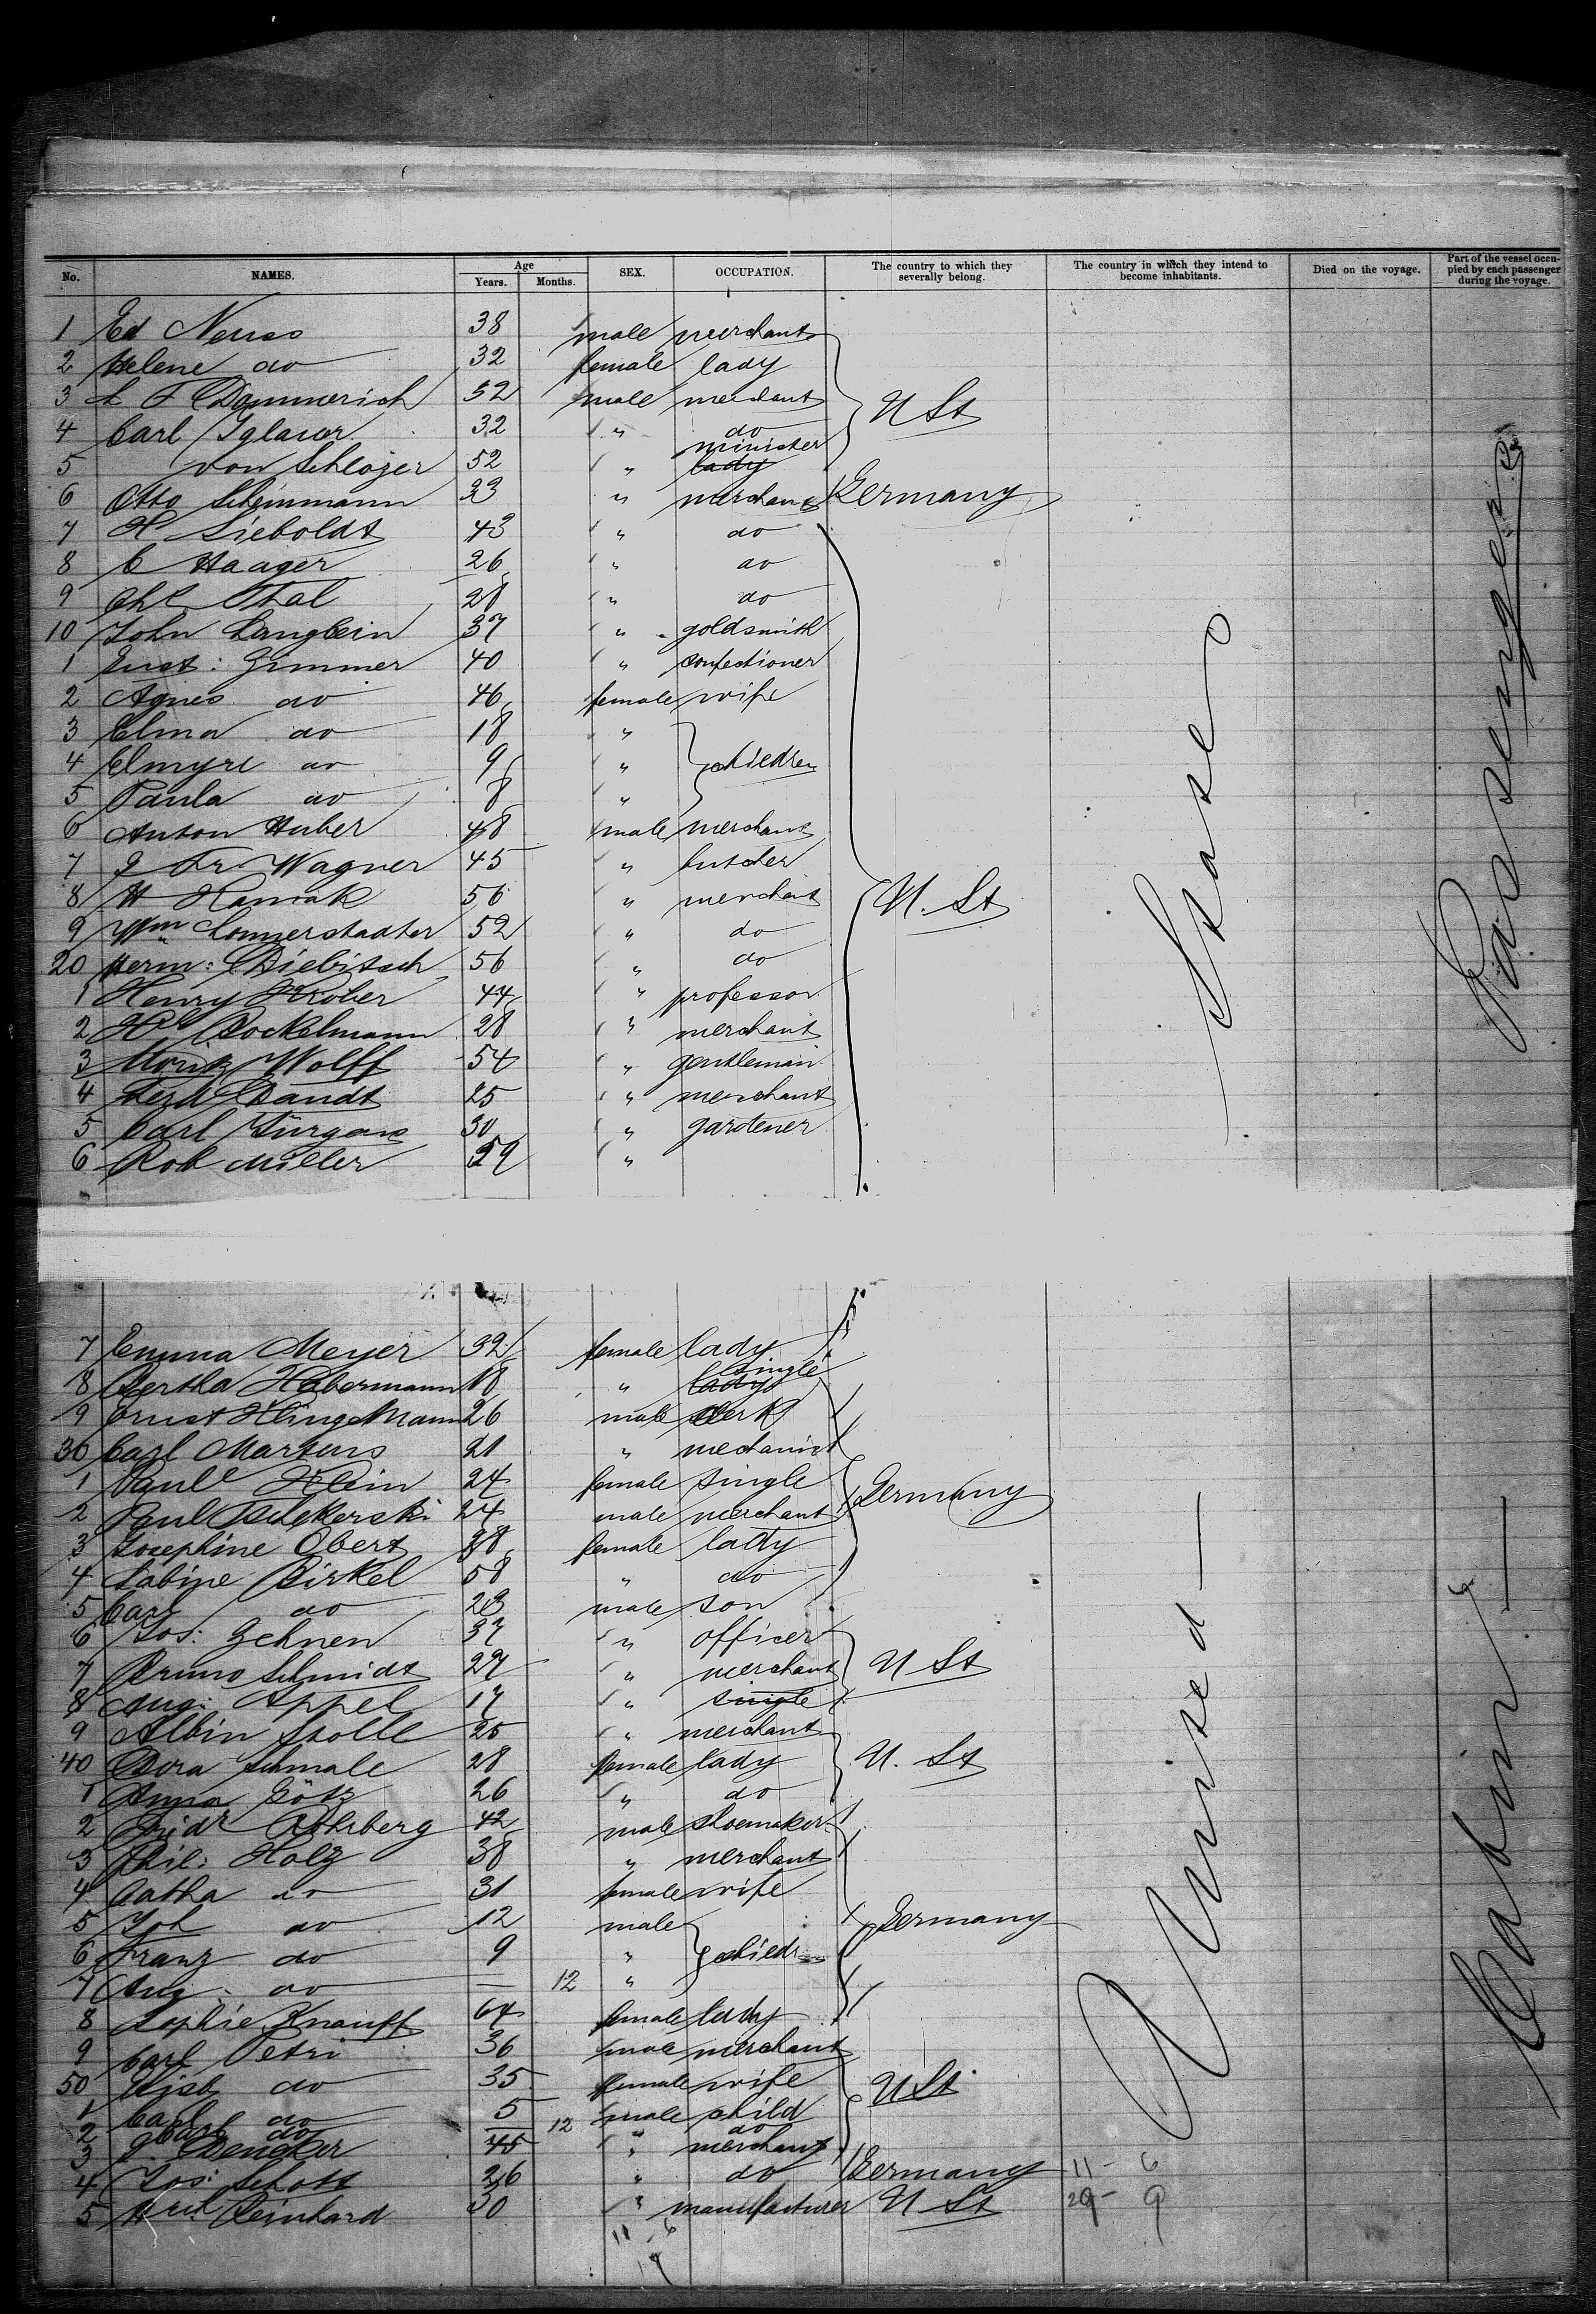 No. NAMES. Age Years. Months. SEX. OCCUPATION. The country to which they severally belong. The country in which they intend to become inhabitants. Died on the voyage. Part of the vessel occupied by each passenger during the voyage.
1 Ed Neuss 38 male merchant
2 Helene do 32 female lady
3 L F Dommerich 52 male merchant U St
4 Carl 32 " do
minister
5 von Schlözer 52 " lady
6 Otto Scheinmann 23 " merchant Germany
7 H Sieboldt 43 " do
8 C Haager 26 " do
9 Chl Thal 28 " do
10 John Langbein 37 " goldsmith
1 Gust: Zimmer 40 " confectioner
2 Agnes do 46 female wife
3 Elma do 18 "
4 Elmyre do 9 " children
5 Paula do 8 "
6 Anton Huber 48 male merchant
7 J Fr Wagner 45 " butcher
8 H 56 " merchant U. St
9 Wm Sommerstadter 52 " do
20 Herm: Diebitsch 56 " do
1 Henry Krober 44 " professor
2 Hd Bockelmann 28 " merchant
3 Moritz Wolff 54 " gentleman
4 Ferd Bandt 25 " merchant
5 Carl Jürgens 30 " gardener
6 Rob Miller 59 "
States
Passengers
7 Emma Meyer 32 female lady
single
8 Bertha Habermann 18 " lady
9 Ernst Klingelmann 26 male clerk
30 Carl Martens 21 " mechanict
1 Paule Klein 24 female single Germany
2 Paul 24 male merchant
3 Josephine Obert 38 female lady
4 Sabine Birkel 58 " do
5 Carl do 23 male son
6 Jos: Zehnen 37 " officer
7 Bruno Schmidt 27 " merchant U St
8 Aug: Appel 17 " single
9 Albin Stolle 25 " merchant
40 Dora Schmale 28 female lady U. St
1 Anna Götz 26 " do
2 Fridr Rohrberg 42 male shoemaker
3 Phil: Holz 38 " merchant
4 Catha do 31 female wife
5 Joh do 12 male Germany
6 Franz do 9 " children
7 Aug: do — 12 "
8 Sophie Knauff 64 female lady
9 Carl Petri 36 male merchant
50 Elisb do 35 female wife U St
1 Carl do 5 male child
2 Carl do 12 " do
3 J. Dencker 45 " merchant
4 Jos: Schott 26 " do Germany 11 - 6
5 Hrch Leinhard 30 " manufacturer U St 29 - 9
11 - 6
17
United
Cabin